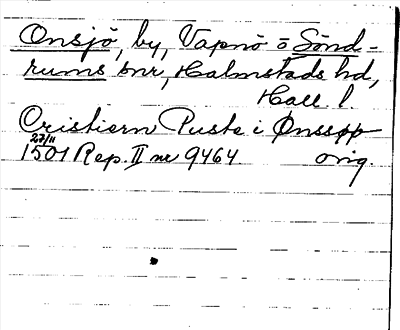 Onsjö, by, Vapnö ö Sönd-
rums snr, Halmstads hd,
Hall. l.
Cristiern Puste i Ønssøp
27/11
1501 Rep. II nr 9464. orig.